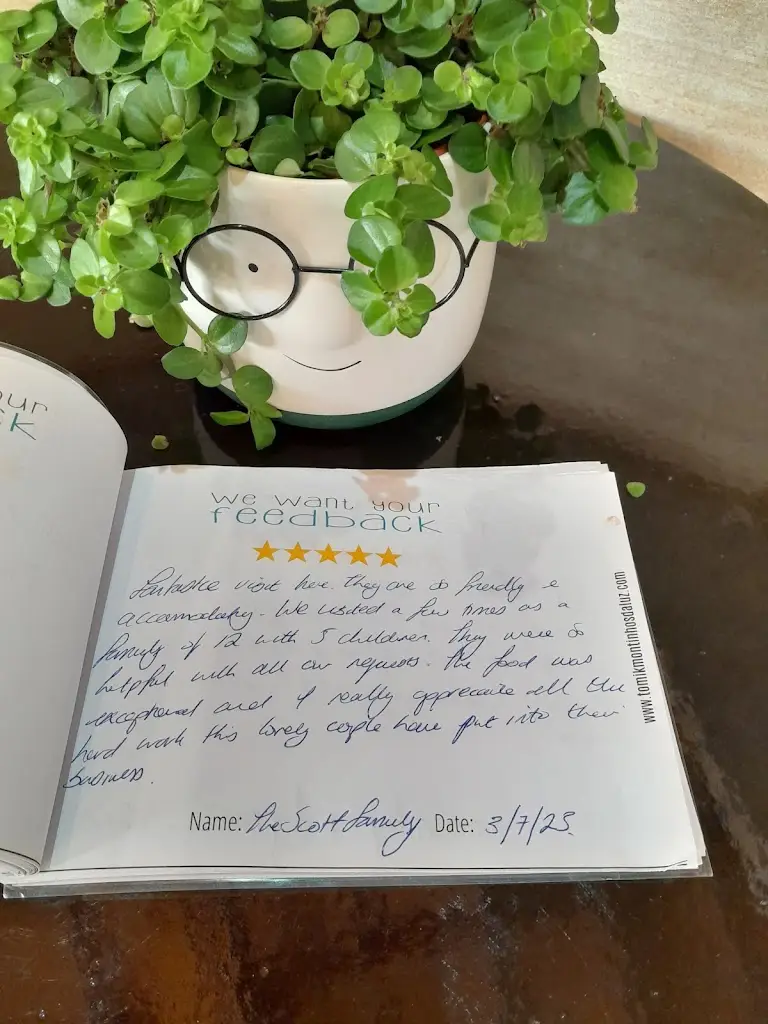 our
ck
we want your
feedback
Fantastic visit here. They are so friendly &
accomodating. We visited a few times as a
family of 12 with 5 children. They were so
helpful with all our requests. The food was
exceptional and I really appreciate all the
hard work this lovely couple have put into their
business.
Name: The Scott Family Date: 3/7/23.
www.tomikmontinhosdaluz.com